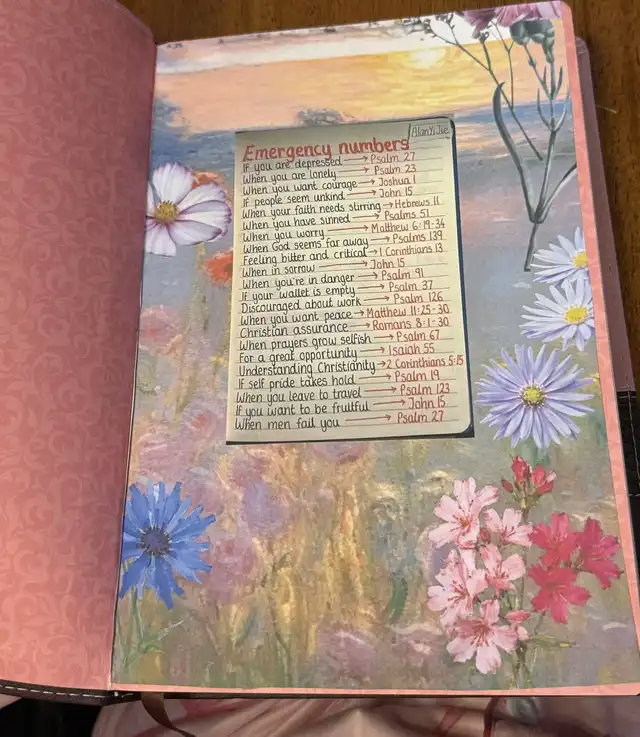 AlanYiJse
Emergency numbers
If you are depressed → Psalm 27
When you are lonely → Psalm 23
When you want courage → Joshua 1
If people seem unkind → John 15
When your faith needs stirring → Hebrews 11
When you have sinned → Psalms 51
When you worry → Matthew 6:19-34
When God seems far away → Psalms 139
Feeling bitter and critical → 1 Corinthians 13
When in sorrow → John 15
When you're in danger → Psalm 91
If your wallet is empty → Psalm 37
Discouraged about work → Psalm 126
When you want peace → Matthew 11:25-30
Christian assurance → Romans 8:1-30
When prayers grow selfish → Psalm 67
For a great opportunity → Isaiah 55
Understanding Christianity → 2 Corinthians 5:15
If self pride takes hold → Psalm 19
When you leave to travel → Psalm 123
If you want to be fruitful → John 15
When men fail you → Psalm 27